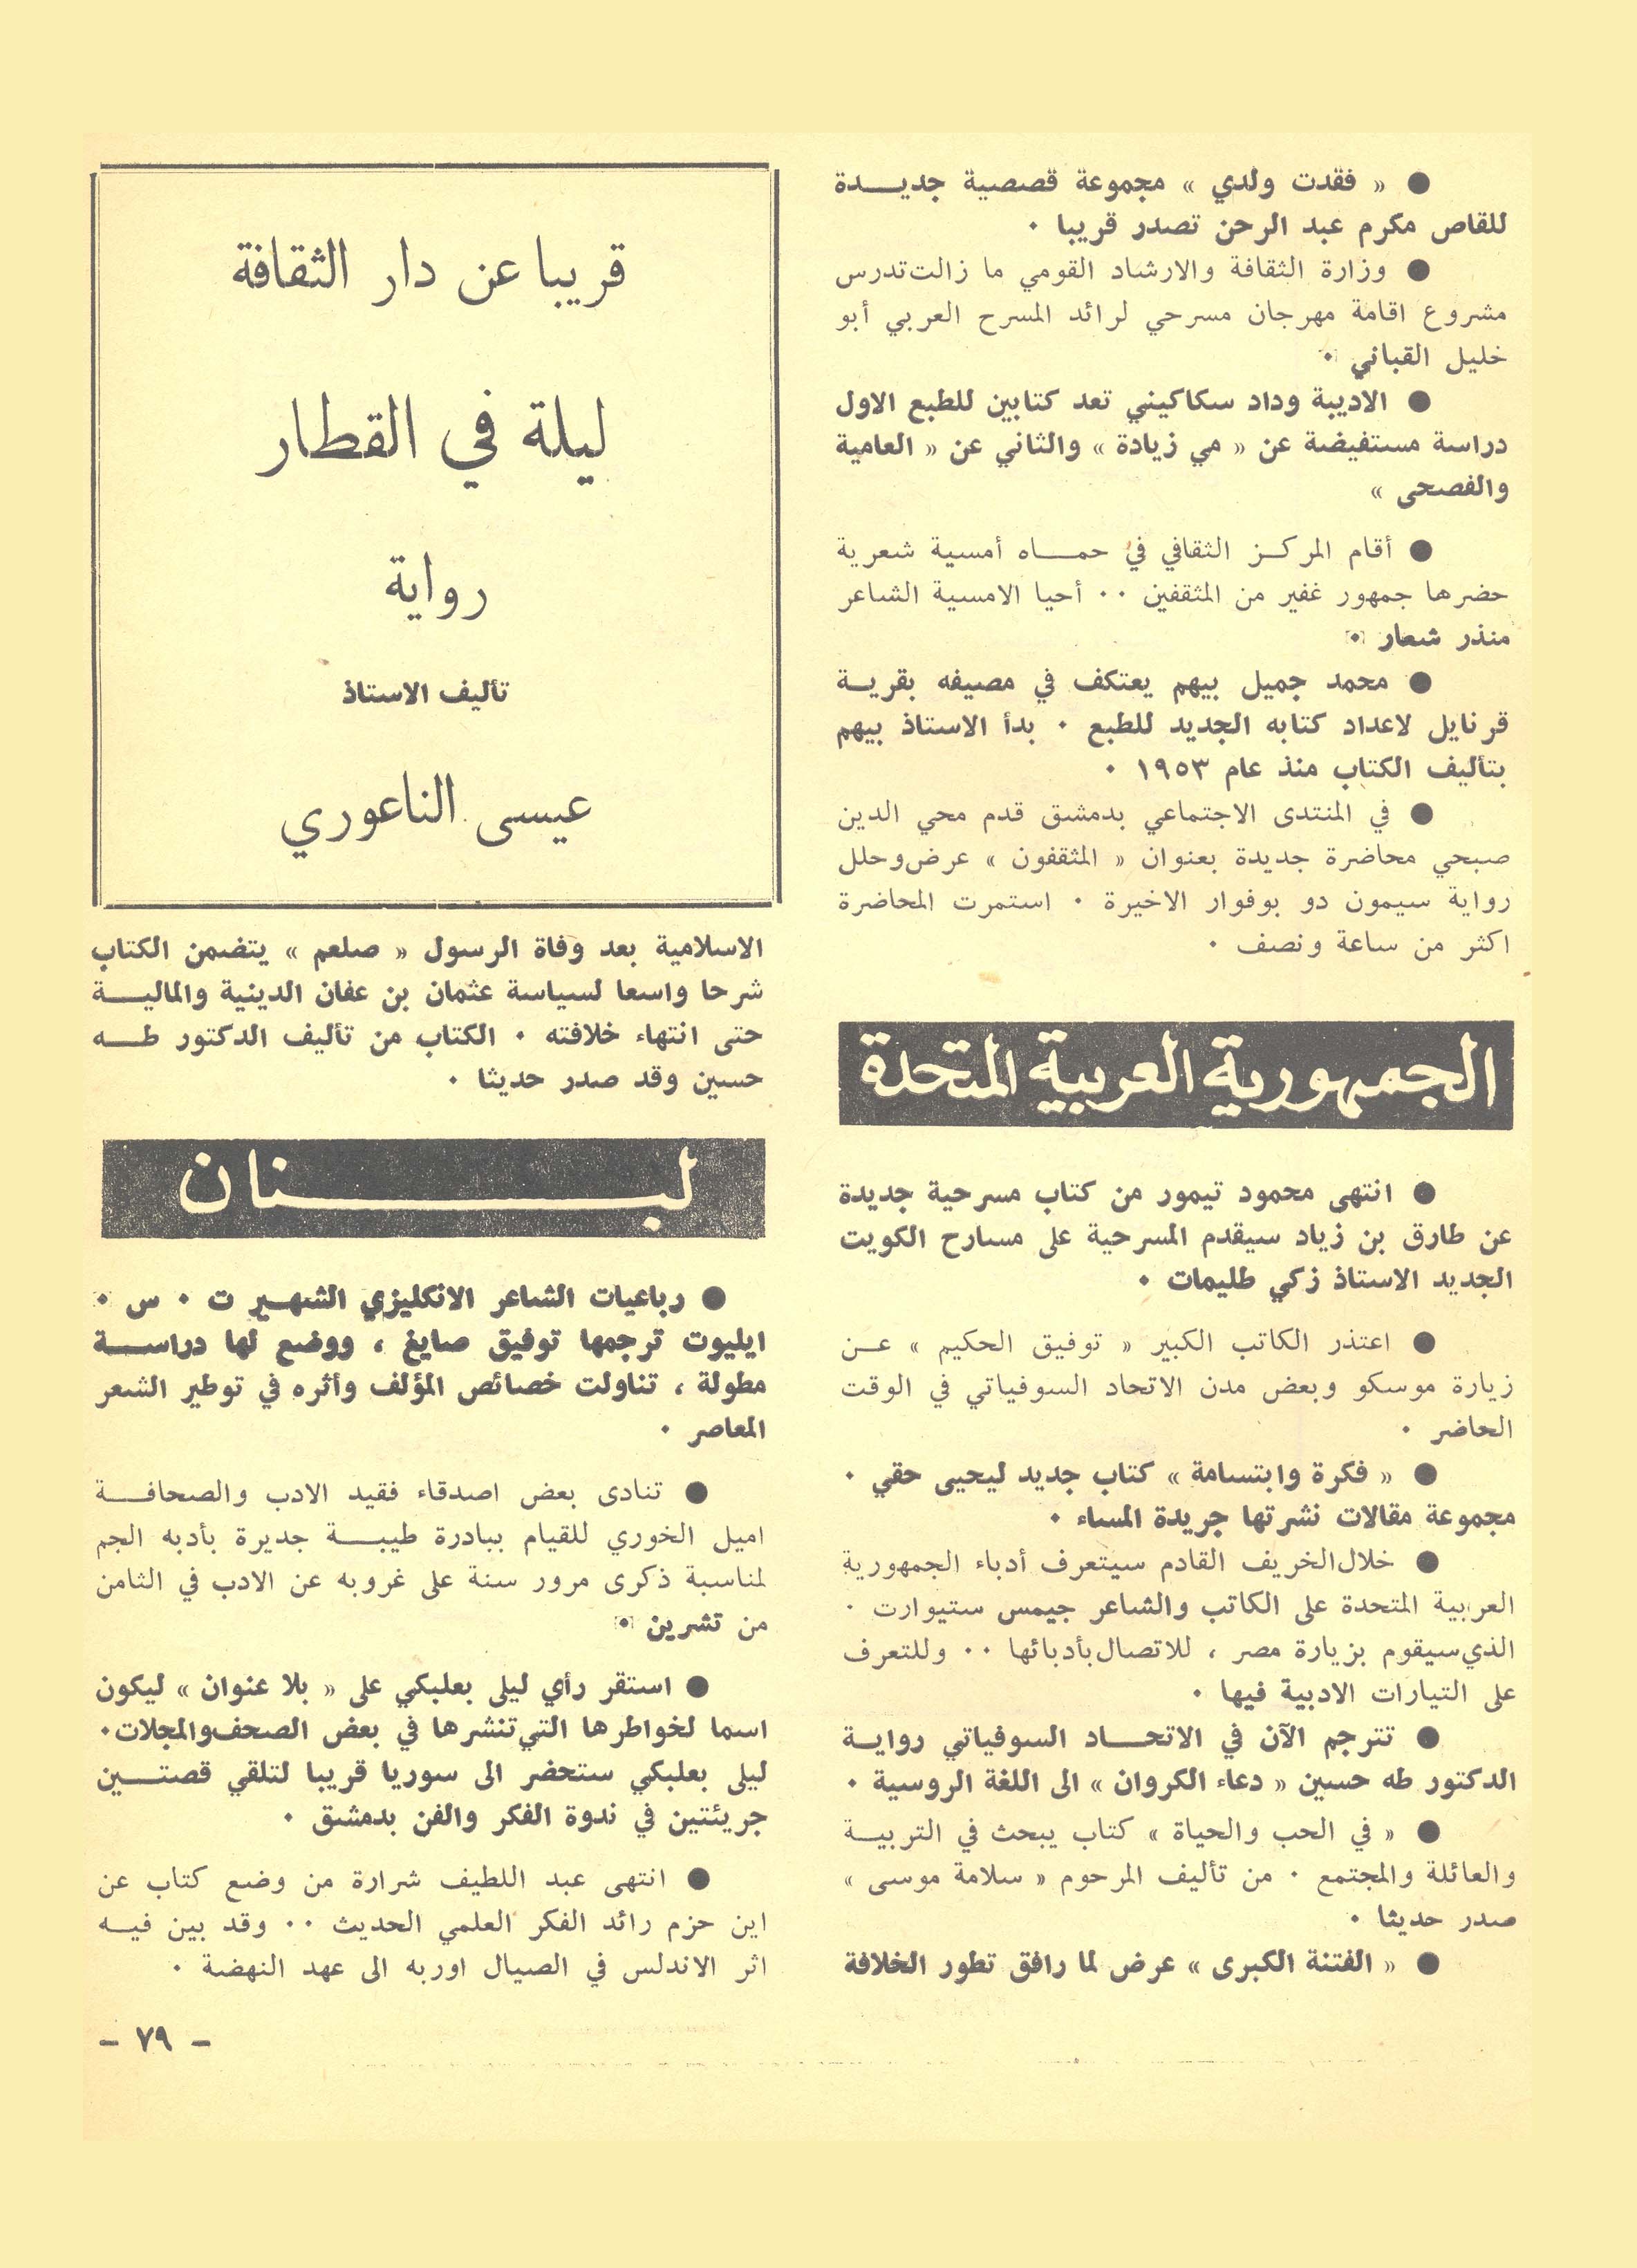 ● « فقدت ولدي » مجموعة قصصية جديدة
للقاص مكرم عبد الرحن تصدر قريبا ٠
● وزارة الثقافة والارشاد القومي ما زالت تدرس
مشروع اقامة مهرجان مسرحي لرائد المسرح العربي أبو
خليل القباني ٠
● الاديبة وداد سكاكيني تعد كتابين للطبع الاول
دراسة مستفيضة عن « مي زيادة » والثاني عن « العامية
والفصحى »
● أقام المركز الثقافي في حماه أمسية شعرية
حضرها جمهور غفير من المثقفين ٠٠ أحيا الامسية الشاعر
منذر شعار ٠
● محمد جميل بيهم يعتكف في مصيفه بقرية
قرنايل لاعداد كتابه الجديد للطبع ٠ بدأ الاستاذ بيهم
بتأليف الكتاب منذ عام ١٩٥٣ ٠
● في المنتدى الاجتماعي بدمشق قدم محي الدين
صبحي محاضرة جديدة بعنوان « المثقفون » عرض وحلل
رواية سيمون دو بوفوار الاخيرة ٠ استمرت المحاضرة
اكثر من ساعة ونصف ٠
الجمهورية العربية المتحدة
● انتهى محمود تيمور من كتاب مسرحية جديدة
عن طارق بن زياد سيقدم المسرحية على مسارح الكويت
الجديد الاستاذ زكي طليمات ٠
● اعتذر الكاتب الكبير « توفيق الحكيم » عن
زيارة موسكو وبعض مدن الاتحاد السوفياتي في الوقت
الحاضر ٠
● « فكرة وابتسامة » كتاب جديد ليحيى حقي ٠
مجموعة مقالات نشرتها جريدة المساء ٠
● خلال الخريف القادم سيتعرف أدباء الجمهورية
العربية المتحدة على الكاتب والشاعر جيمس ستيوارت ٠
الذي سيقوم بزيارة مصر ، للاتصال بأدبائها ٠٠ وللتعرف
على التيارات الادبية فيها ٠
● تترجم الآن في الاتحاد السوفياتي رواية
الدكتور طه حسين « دعاء الكروان » الى اللغة الروسية ٠
● « في الحب والحياة » كتاب يبحث في التربية
والعائلة والمجتمع ٠ من تأليف المرحوم « سلامة موسى »
صدر حديثا ٠
● « الفتنة الكبرى » عرض لما رافق تطور الخلافة
قريبا عن دار الثقافة
ليلة في القطار
رواية
تأليف الاستاذ
عيسى الناعوري
الاسلامية بعد وفاة الرسول « صلعم » يتضمن الكتاب
شرحا واسعا لسياسة عثمان بن عفان الدينية والمالية
حتى انتهاء خلافته ٠ الكتاب من تأليف الدكتور طه
حسين وقد صدر حديثا ٠
لبنان
● رباعيات الشاعر الانكليزي الشهير ت ٠ س ٠
ايليوت ترجمها توفيق صايغ ، ووضع لها دراسة
مطولة ، تناولت خصائص المؤلف وأثره في توطير الشعر
المعاصر ٠
● تنادى بعض اصدقاء فقيد الادب والصحافة
اميل الخوري للقيام ببادرة طيبة جديرة بأدبه الجم
لمناسبة ذكرى مرور سنة على غروبه عن الادب في الثامن
من تشرين ٠
● استقر رأي ليلى بعلبكي على « بلا عنوان » ليكون
اسما لخواطرها التي تنشرها في بعض الصحف والمجلات ٠
ليلى بعلبكي ستحضر الى سوريا قريبا لتلقي قصتين
جريئتين في ندوة الفكر والفن بدمشق ٠
● انتهى عبد اللطيف شرارة من وضع كتاب عن
اين حزم رائد الفكر العلمي الحديث ٠٠ وقد بين فيه
اثر الاندلس في الصيال اوربه الى عهد النهضة ٠
- ٧٩ -